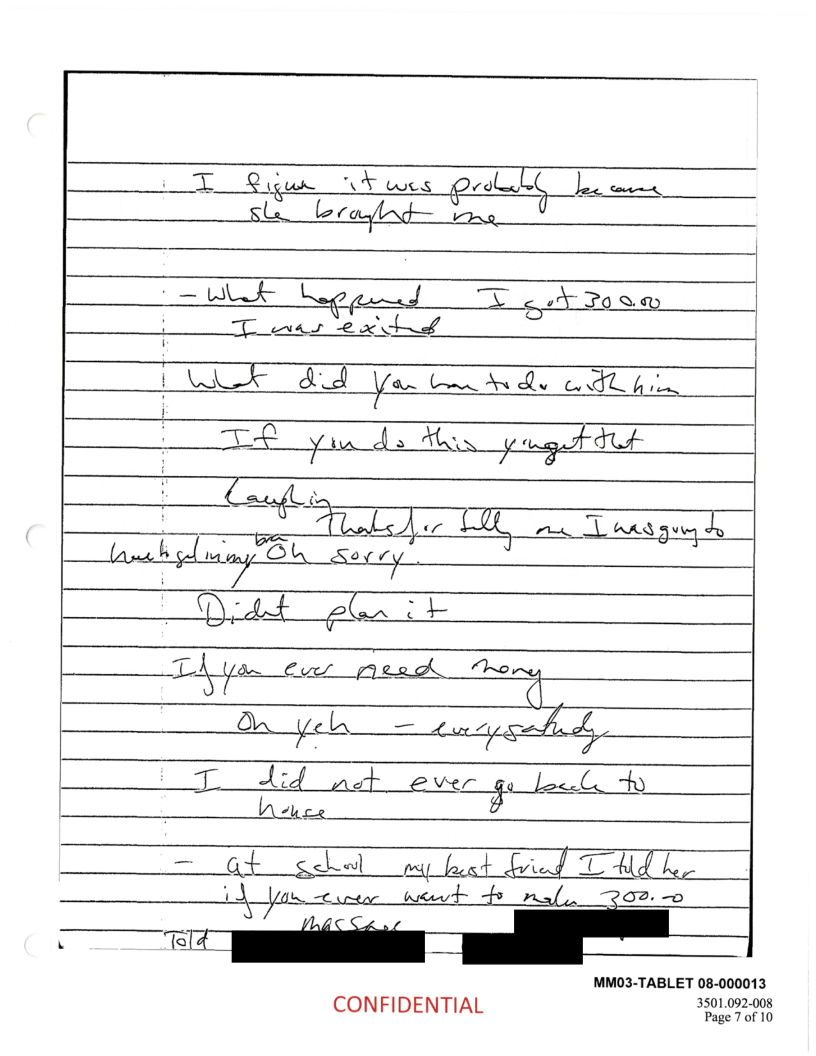 I figure it was probably because
she brought me
- What happened I got 300.00
I was exited
What did you have to do with him
If you do this you get that
Laughing
Thanks for telling me I was going to
bra
in my Oh sorry.
Didnt plan it
If you ever need money
Oh yeh - every saturday
I did not ever go back to
house
- at school my best friend I told her
if you ever want to make 300.00
massage
Told
MM03-TABLET 08-000013
CONFIDENTIAL
3501.092-008
Page 7 of 10